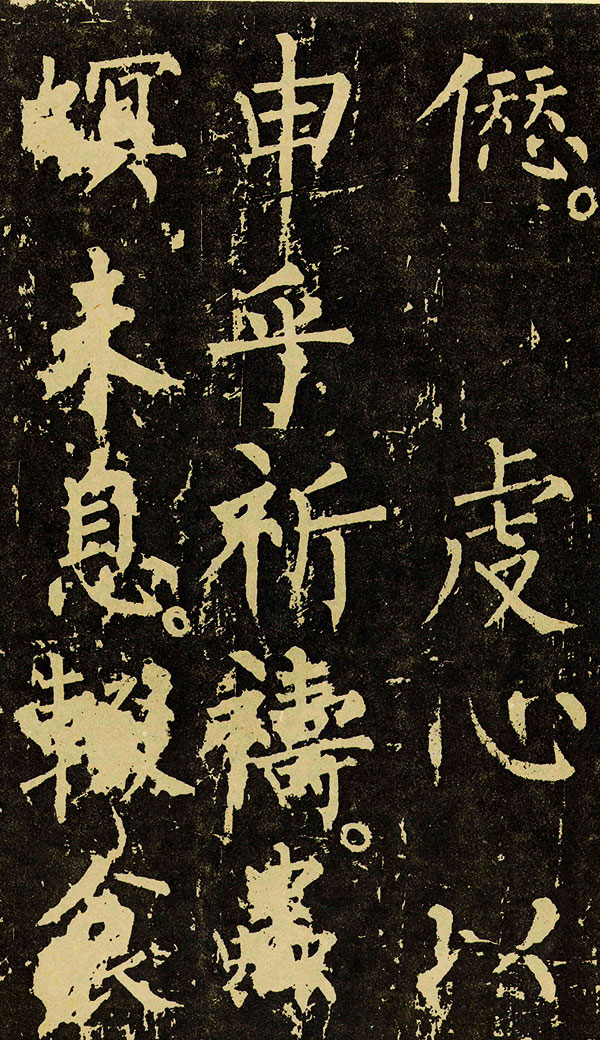 愆。虔心以
申乎祈禱。蟲
螟未息。輟食